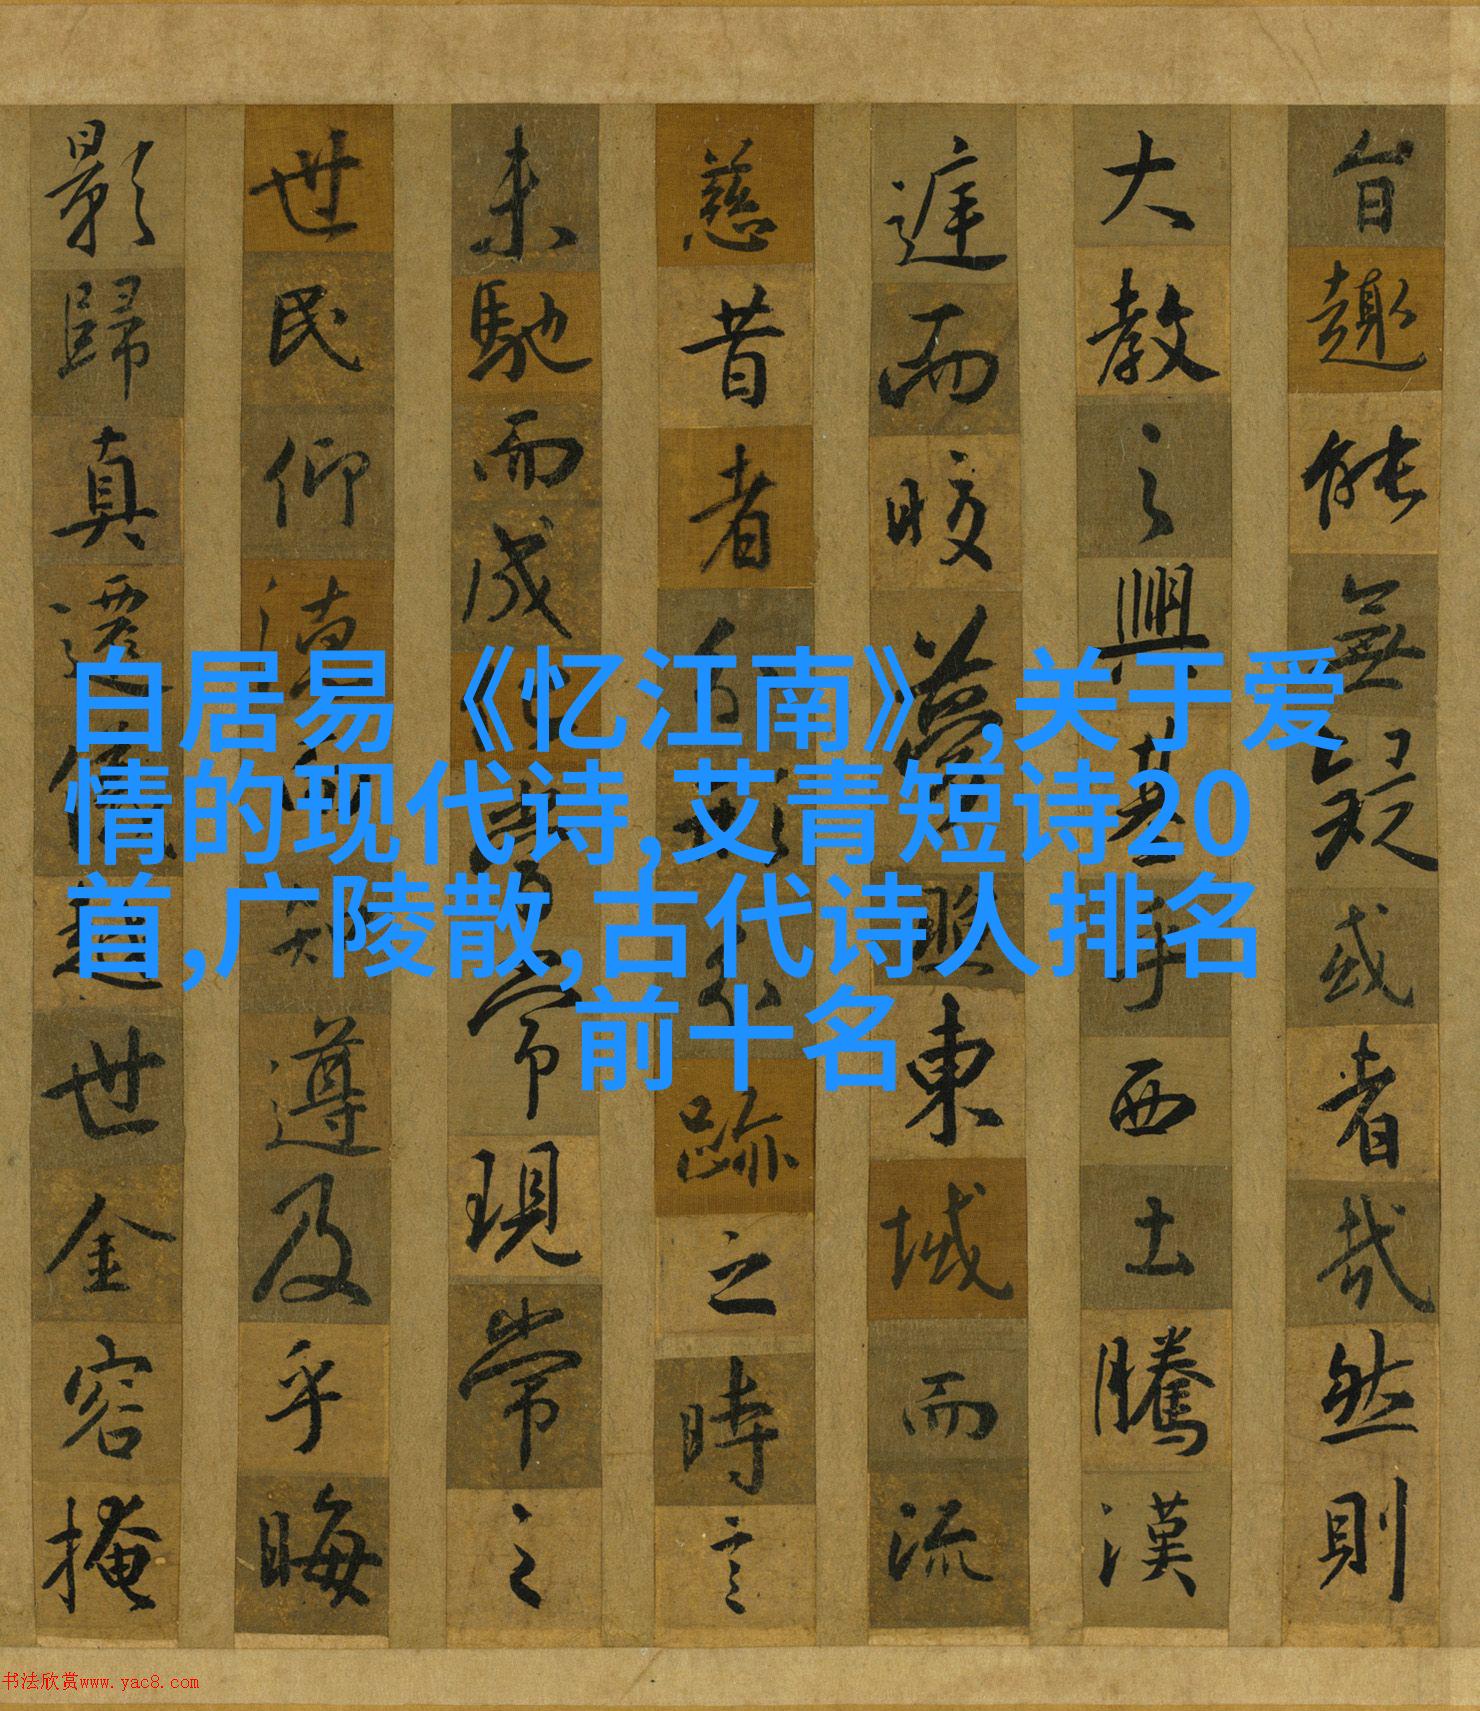 旨趣能無疑或者哉然則
大教之興基乎西土騰漢
庭而皎夢照東域而流
慈昔者分形分跡之時言
未馳而成化當常現常之
世民仰德而知遵及乎晦
影歸真遷儀越世金容掩
白居易《忆江南》,关于爱
情的现代诗,艾青短诗20
首,广陵散,古代诗人排名
前十名
书法欣赏www.yac8.com